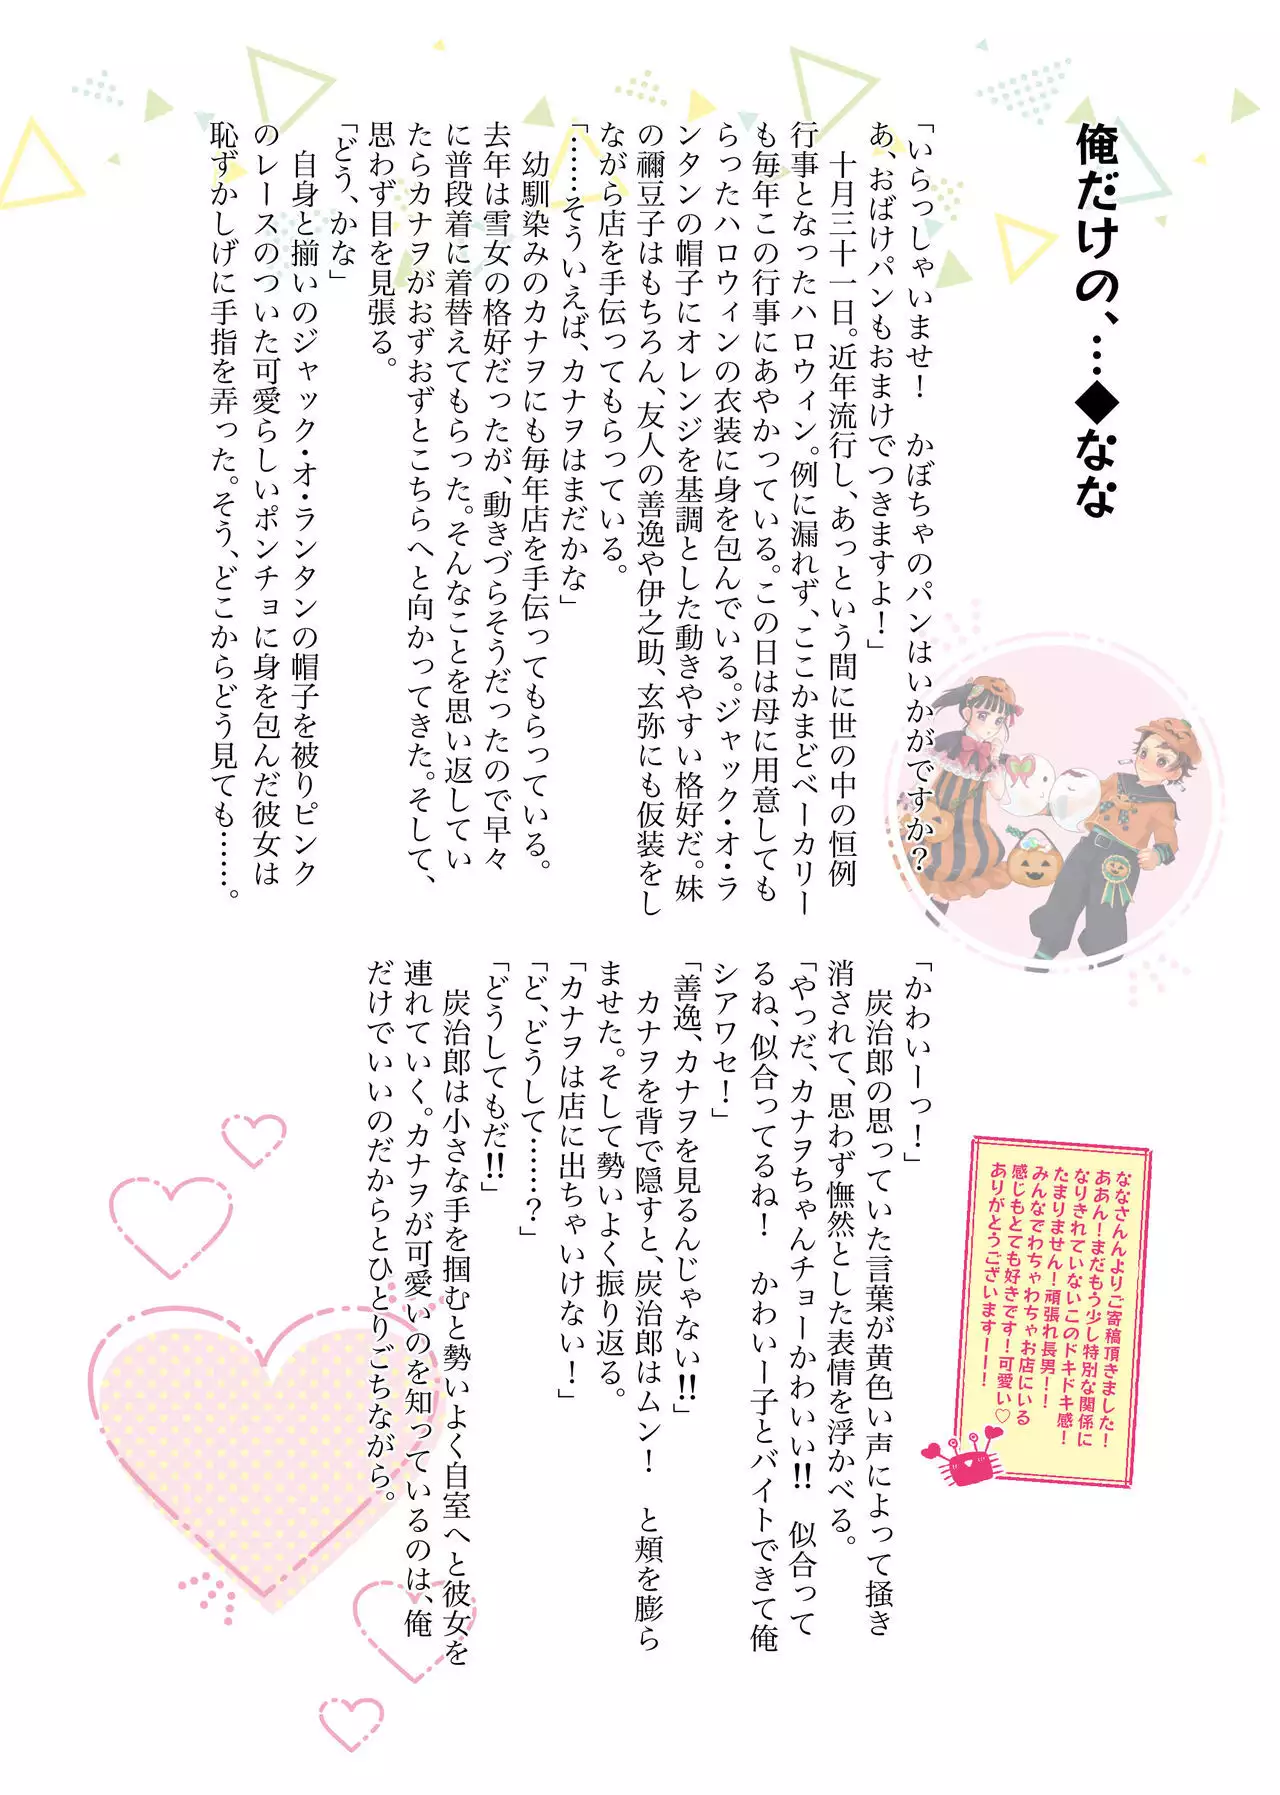 俺だけの、…◆なな
「いらっしゃいませ！　かぼちゃのパンはいかがですか？
あ、おばけパンもおまけでつきますよ！」
　十月三十一日。近年流行し、あっという間に世の中の恒例
行事となったハロウィン。例に漏れず、ここかまどベーカリー
も毎年この行事にあやかっている。この日は母に用意しても
らったハロウィンの衣装に身を包んでいる。ジャック・オ・ラ
ンタンの帽子にオレンジを基調とした動きやすい格好だ。妹
の禰豆子はもちろん、友人の善逸や伊之助、玄弥にも仮装をし
ながら店を手伝ってもらっている。
「……そういえば、カナヲはまだかな」
　幼馴染みのカナヲにも毎年店を手伝ってもらっている。
去年は雪女の格好だったが、動きづらそうだったので早々
に普段着に着替えてもらった。そんなことを思い返してい
たらカナヲがおずおずとこちらへと向かってきた。そして、
思わず目を見張る。
「どう、かな」
　自身と揃いのジャック・オ・ランタンの帽子を被りピンク
のレースのついた可愛らしいポンチョに身を包んだ彼女は
恥ずかしげに手指を弄った。そう、どこからどう見ても……。
「かわいーっ！」
　炭治郎の思っていた言葉が黄色い声によって掻き
消されて、思わず憮然とした表情を浮かべる。
「やっだ、カナヲちゃんチョーかわいい!!　似合って
るね、似合ってるね！　かわいー子とバイトできて俺
シアワセ！」
「善逸、カナヲを見るんじゃない!!」
　カナヲを背で隠すと、炭治郎はムン！　と頬を膨ら
ませた。そして勢いよく振り返る。
「カナヲは店に出ちゃいけない！」
「ど、どうして……？」
「どうしてもだ!!」
　炭治郎は小さな手を掴むと勢いよく自室へと彼女を
連れていく。カナヲが可愛いのを知っているのは、俺
だけでいいのだからとひとりごちながら。
ななさんんよりご寄稿頂きました！
ああん！まだもう少し特別な関係に
なりきれていないこのドキドキ感！
たまりません！頑張れ長男！！
みんなでわちゃわちゃお店にいる
感じもとても好きです！可愛い♡
ありがとうございます！ーー！